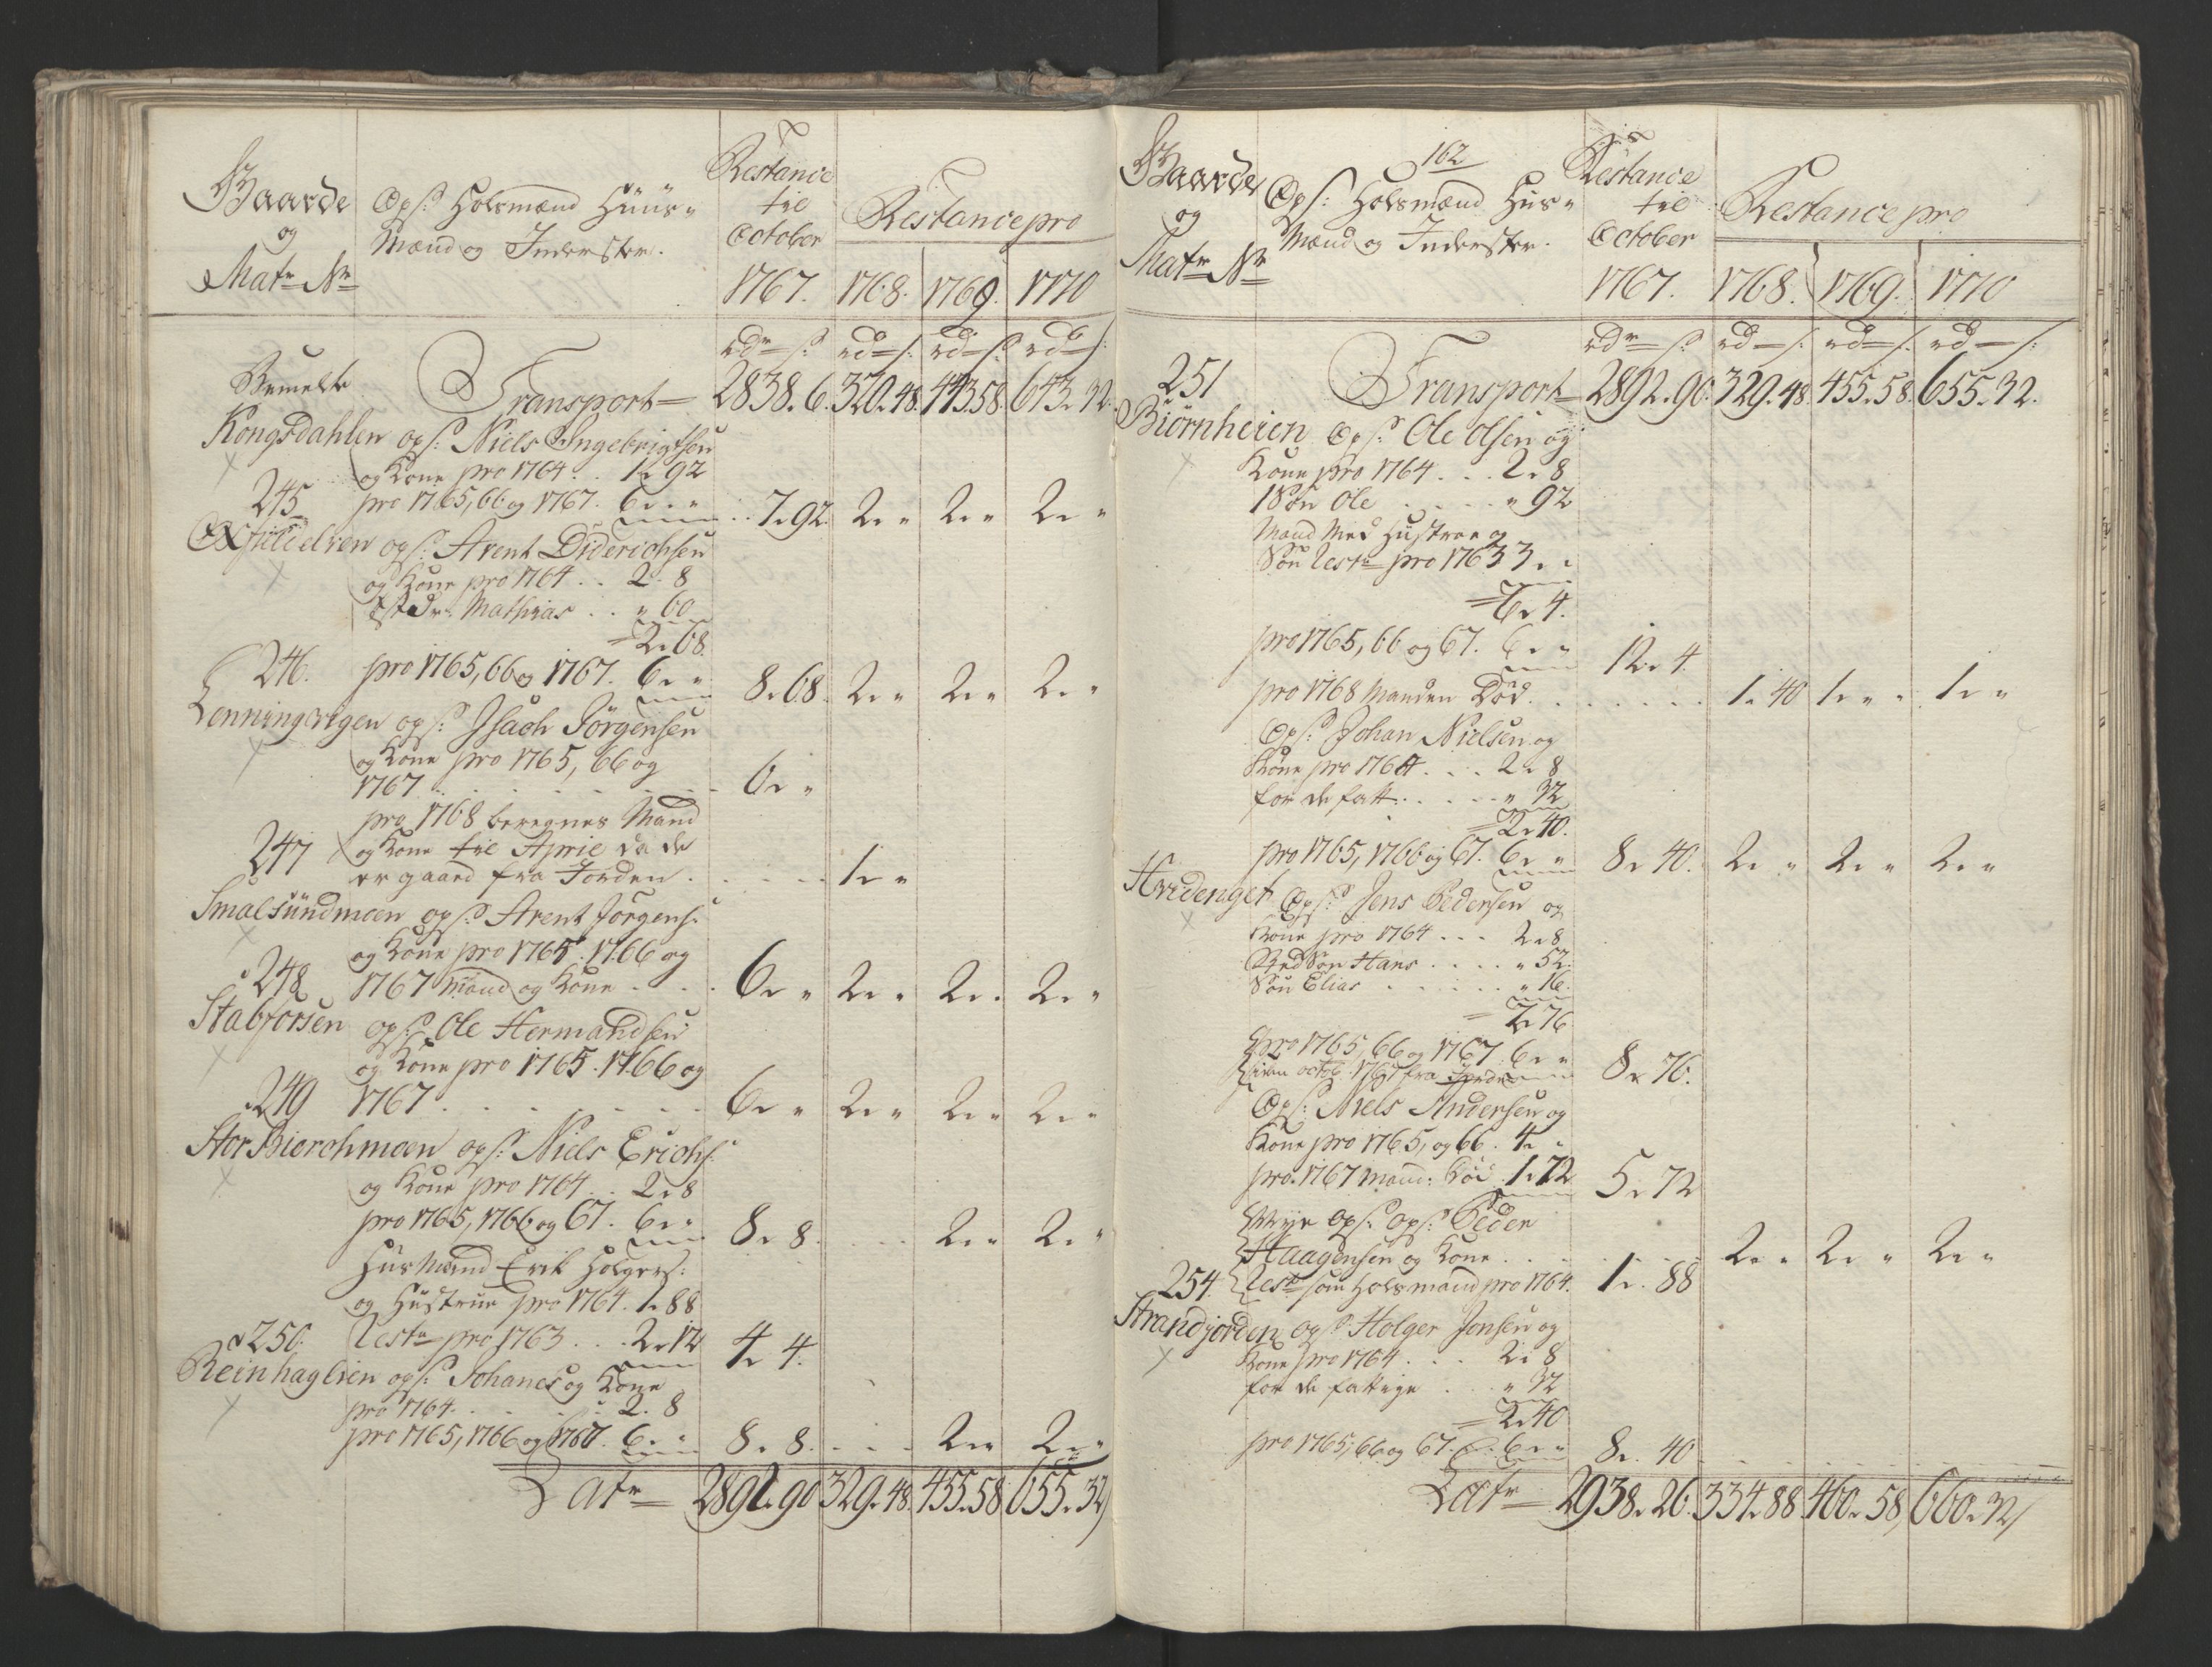 Gaarde
og
Matr Nr
Ops: Holsmænd Huus-
Mænd og Inderster.
Restance
til
October
1767.
Restance pro
1768. 1769. 1770
rdr s: rd s: rd s: rd s:
Bemelte Transport 2838. 6. 320. 48. 443. 58. 643. 32.
Kongsdahlen ops: Niels Ingebrigtsen
og Kone pro 1764 . . 1. 92
245 pro 1765, 66 og 1767. 6. " . . 7. 92. 2. " 2. " 2. "
Oxfieldelven ops: Arent Diderichsen
og Kone pro 1764 . . 2. 8
Mathias . . " 60
2. 68.
246. pro 1765, 66 og 1767. 6. " 8. 68. 2. " 2. " 2. "
Lenningvigen ops: Isach Jörgensen
og Kone pro 1765, 66 og
1767 . . . . 6. "
pro 1768 beregnes Mand
247 og Kone til April da de
er gaaed fra Jorden . . . . 1. "
Smalsundmoen ops: Arent Jörgens:
og Kone pro 1765. 1766 og
248 1767 Mand og Kone . . . 6. " 2. " 2. " 2. "
Stabforsen ops: Ole Hermandsen
og Kone pro 1765. 1766 og
249 1767 . . . . 6. " 2. " 2. " 2. "
Stor Bierchmoen ops: Niels Erichs:
og Kone pro 1764 . . 2. 8
pro 1765, 1766 og 67. 6. " 8. 8. . . . 2. " 2. "
Huusmand Erik Holgers:
og Hustrue pro 1764. 1. 88
250. Rest pro 1763 . . . 2. 12 4. 4.
Reinhaglien ops: Johanes og Kone
pro 1764 . . . . 2. 8
pro 1765, 1766 og 1767. 6. " 8. 8. . . . 2. " 2. "
Latr 2892. 90 329. 48. 455. 58. 655. 32
162
Gaarde
og
Matr Nr
Ops: Holsmænd Hus-
Mænd og Inderster.
Restance
til
October
1767.
Restance pro
1768. 1769. 1770
rdr s: rd s: rd s: rd s:
251 Transport 2892. 90. 329. 48. 455. 58. 655. 32.
Biörnheien Ops: Ole Olsen og
Kone pro 1764 . . . 2. 8
1 Sön Ole . . . . " 92
Mand Med Hustroe og
Sön Rest pro 1763 3. "
6. 4.
pro 1765, 66 og 67. 6. " 12. 4.
pro 1768 Manden Död . . . . . 1. 40 1. " 1. "
Ops: Johan Nielsen og
Kone pro 1764 . . . 2. 8
for de fatt: . . . . " 32
2. 40.
pro 1765, 1766 og 67. 6. " 8. 40. 2. " 2. " 2. "
Hvidenget Ops: Jens Pedersen og
Kone pro 1764 . . . 2. 8
Sted Sön Hans . . . . " 52.
Sön Elias . . . . " 16.
2. 76
pro 1765, 66 og 1767 6. " 8. 76.
octob: 1767 fra Jorden
Ops: Niels Andersen og
Kone pro 1765, og 66. 4. "
pro 1767 Mand: Död 1. 72 5. 72
Nye Ops: ops: Peder
Haagensen og Kone . . . . . 2. " 2. " 2. "
254. Rest som Holsmand pro 1764. 1. 88
Strandjorden ops: Holger Jonsen og
Kone pro 1764 . . . 2. 8
for de fattige . . . " 32
2. 40
pro 1765, 66 og 67. 6. " 8. 40
Latr 2938. 26. 334. 88 460. 58, 660. 32,